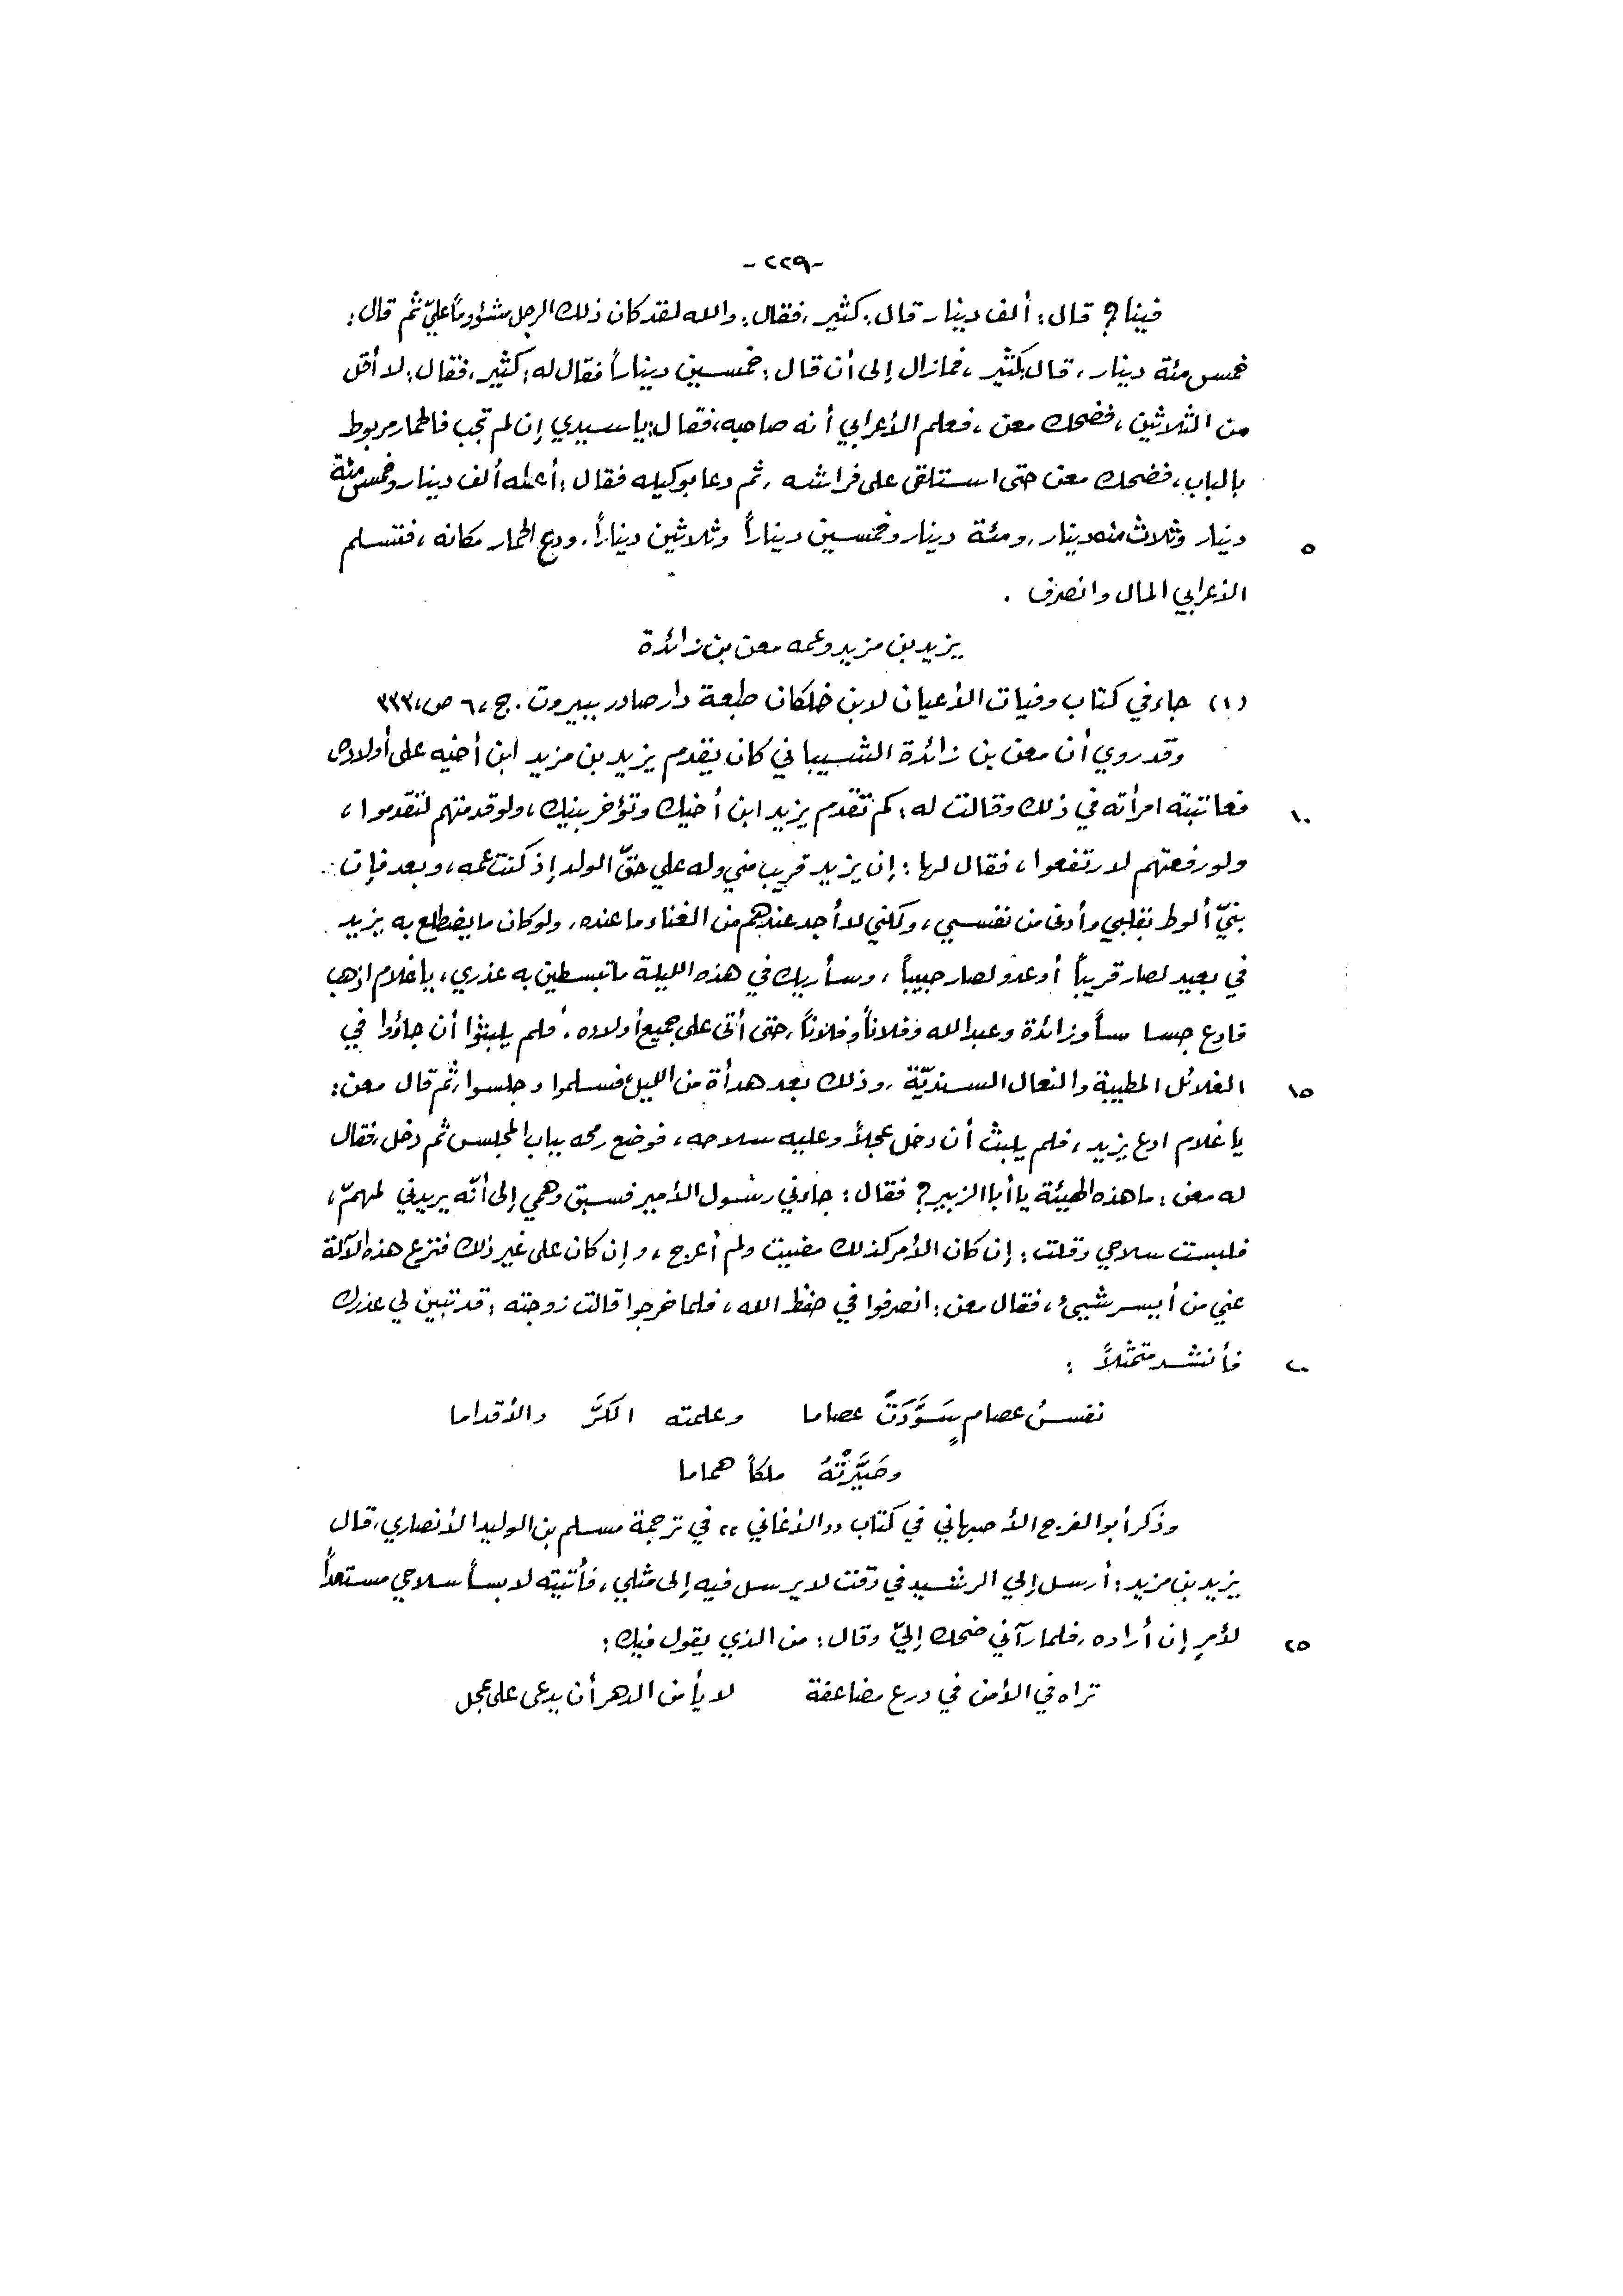 -٢٢٩-
فينا؟ قال: ألف دينار قال: كثير، فقال: والله لقد كان ذلك الرجل مشؤوماً عليّ ثم قال:
خمس مئة دينار، قال: كثير، فمازال إلى أن قال: خمسين ديناراً فقال له: كثير، فقال: لا أقل
من الثلاثين، فضحك معن، فعلم الأعرابي أنه صاحبه، فقال: ياسيدي إن لم تجب فالحمار مربوط
بالباب، فضحك معن حتى استلقى على فراشه، ثم دعا بوكيله فقال: أعطه ألف دينار وخمس مئة
دينار وثلاث مئه دينار، ومئة دينار وخمسين ديناراً وثلاثين ديناراً، ودع الحمار مكانه، فتسلم
٥
الأعرابي المال وانصرف .
يزيد بن مزيد وعمه معن بن زائدة
(١) جاء في كتاب وفيات الأعيان لابن خلكان طبعة دار صادر ببيروت. ج، ٦ ص، ٣٣٣
وقد روي أن معن بن زائدة الشيباني كان يقدم يزيد بن مزيد ابن أخيه على أولاده
فعاتبته امرأته في ذلك وقالت له: كم تقدم يزيد ابن أخيك وتؤخر بنيك، ولو قدمتهم لتقدموا،
١٠
ولو رفعتهم لارتفعوا، فقال لها: إن يزيد قريب مني وله علي حقّ الولد إذ كنت عمه، وبعد فإن
بنيّ ألوط بقلبي وأدنى من نفسي، ولكني لا أجد عندهم من الغناء ما عنده، ولو كان ما يضطلع به يزيد
في بعيد لصار قريباً أو عدو لصار حبيباً، وسأريك في هذه الليلة ما تبسطين به عذري، ياغلام اذهب
فادع جسا ساً وزائدة وعبد الله وفلاناً وفلاناً، حتى أتى على جميع أولاده. فلم يلبثوا أن جاؤوا في
الغلائل المطيبة والنعال السنديّة، وذلك بعد هدأة من الليل، فسلموا وجلسوا، ثمّ قال معن:
١٥
ياغلام ادع يزيد، فلم يلبث أن دخل عجلاً وعليه سلاحه، فوضع رمحه بباب المجلس ثم دخل، فقال
له معن: ما هذه الهيئة يا أبا الزبير؟ فقال: جاءني رسول الأمير فسبق وهمي إلى أنّه يريدني لمهمّ،
فلبست سلاحي وقلت: إن كان الأمر كذلك مضيت ولم أعرج، وإن كان على غير ذلك فنزع هذه الآلة
عني من أيسر شيئ، فقال معن: انصرفوا في حفظ الله، فلما خرجوا قالت زوجته: قد تبين لي عذرك
فأنشد متمثلاً :
٢٠
نفسُ عصامٍ سَوَّدَتْ عصاما وعلمته الكَرَّ والأقداما
وصَيَّرَتْهُ ملكاً هماما
وذكر أبو الفرج الأصبهاني في كتاب ،،الأغاني،، في ترجمة مسلم بن الوليد الأنصاري، قال
يزيد بن مزيد: أرسل إلي الرشيد في وقت لا يرسل فيه إلى مثلي، فأتيته لابساً سلاحي مستعداً
لأمرٍ إن أراده، فلما رآني ضحك إليّ وقال: من الذي يقول فيك:
٢٥
تراه في الأمن في درع مضاعفة لا يأمن الدهر أن يدعى على عجل